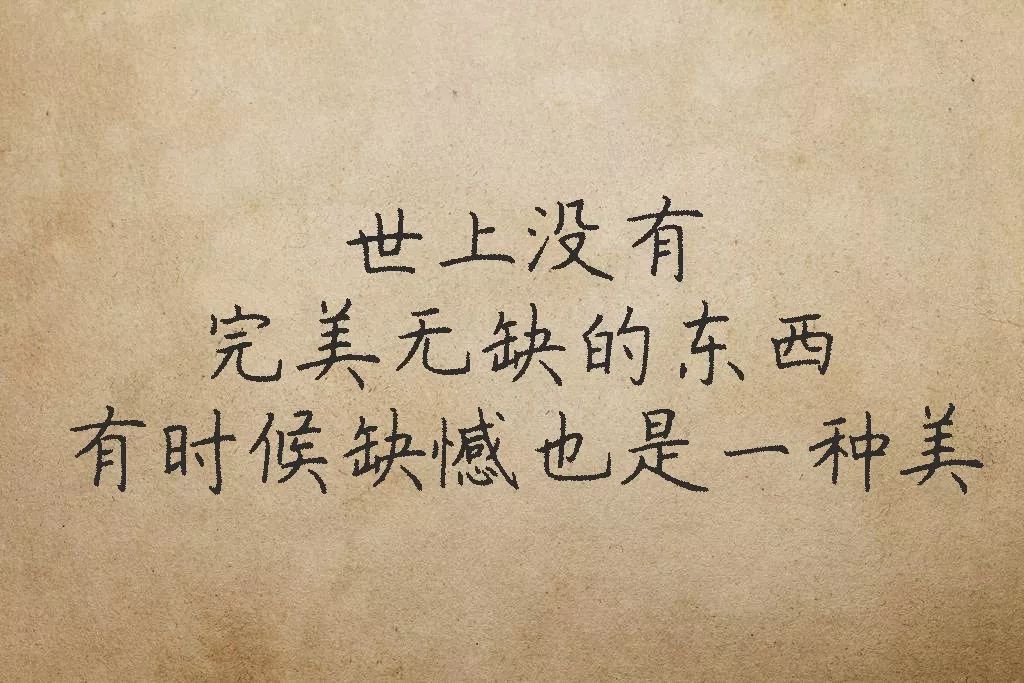 世上没有
完美无缺的东西
有时候缺憾也是一种美